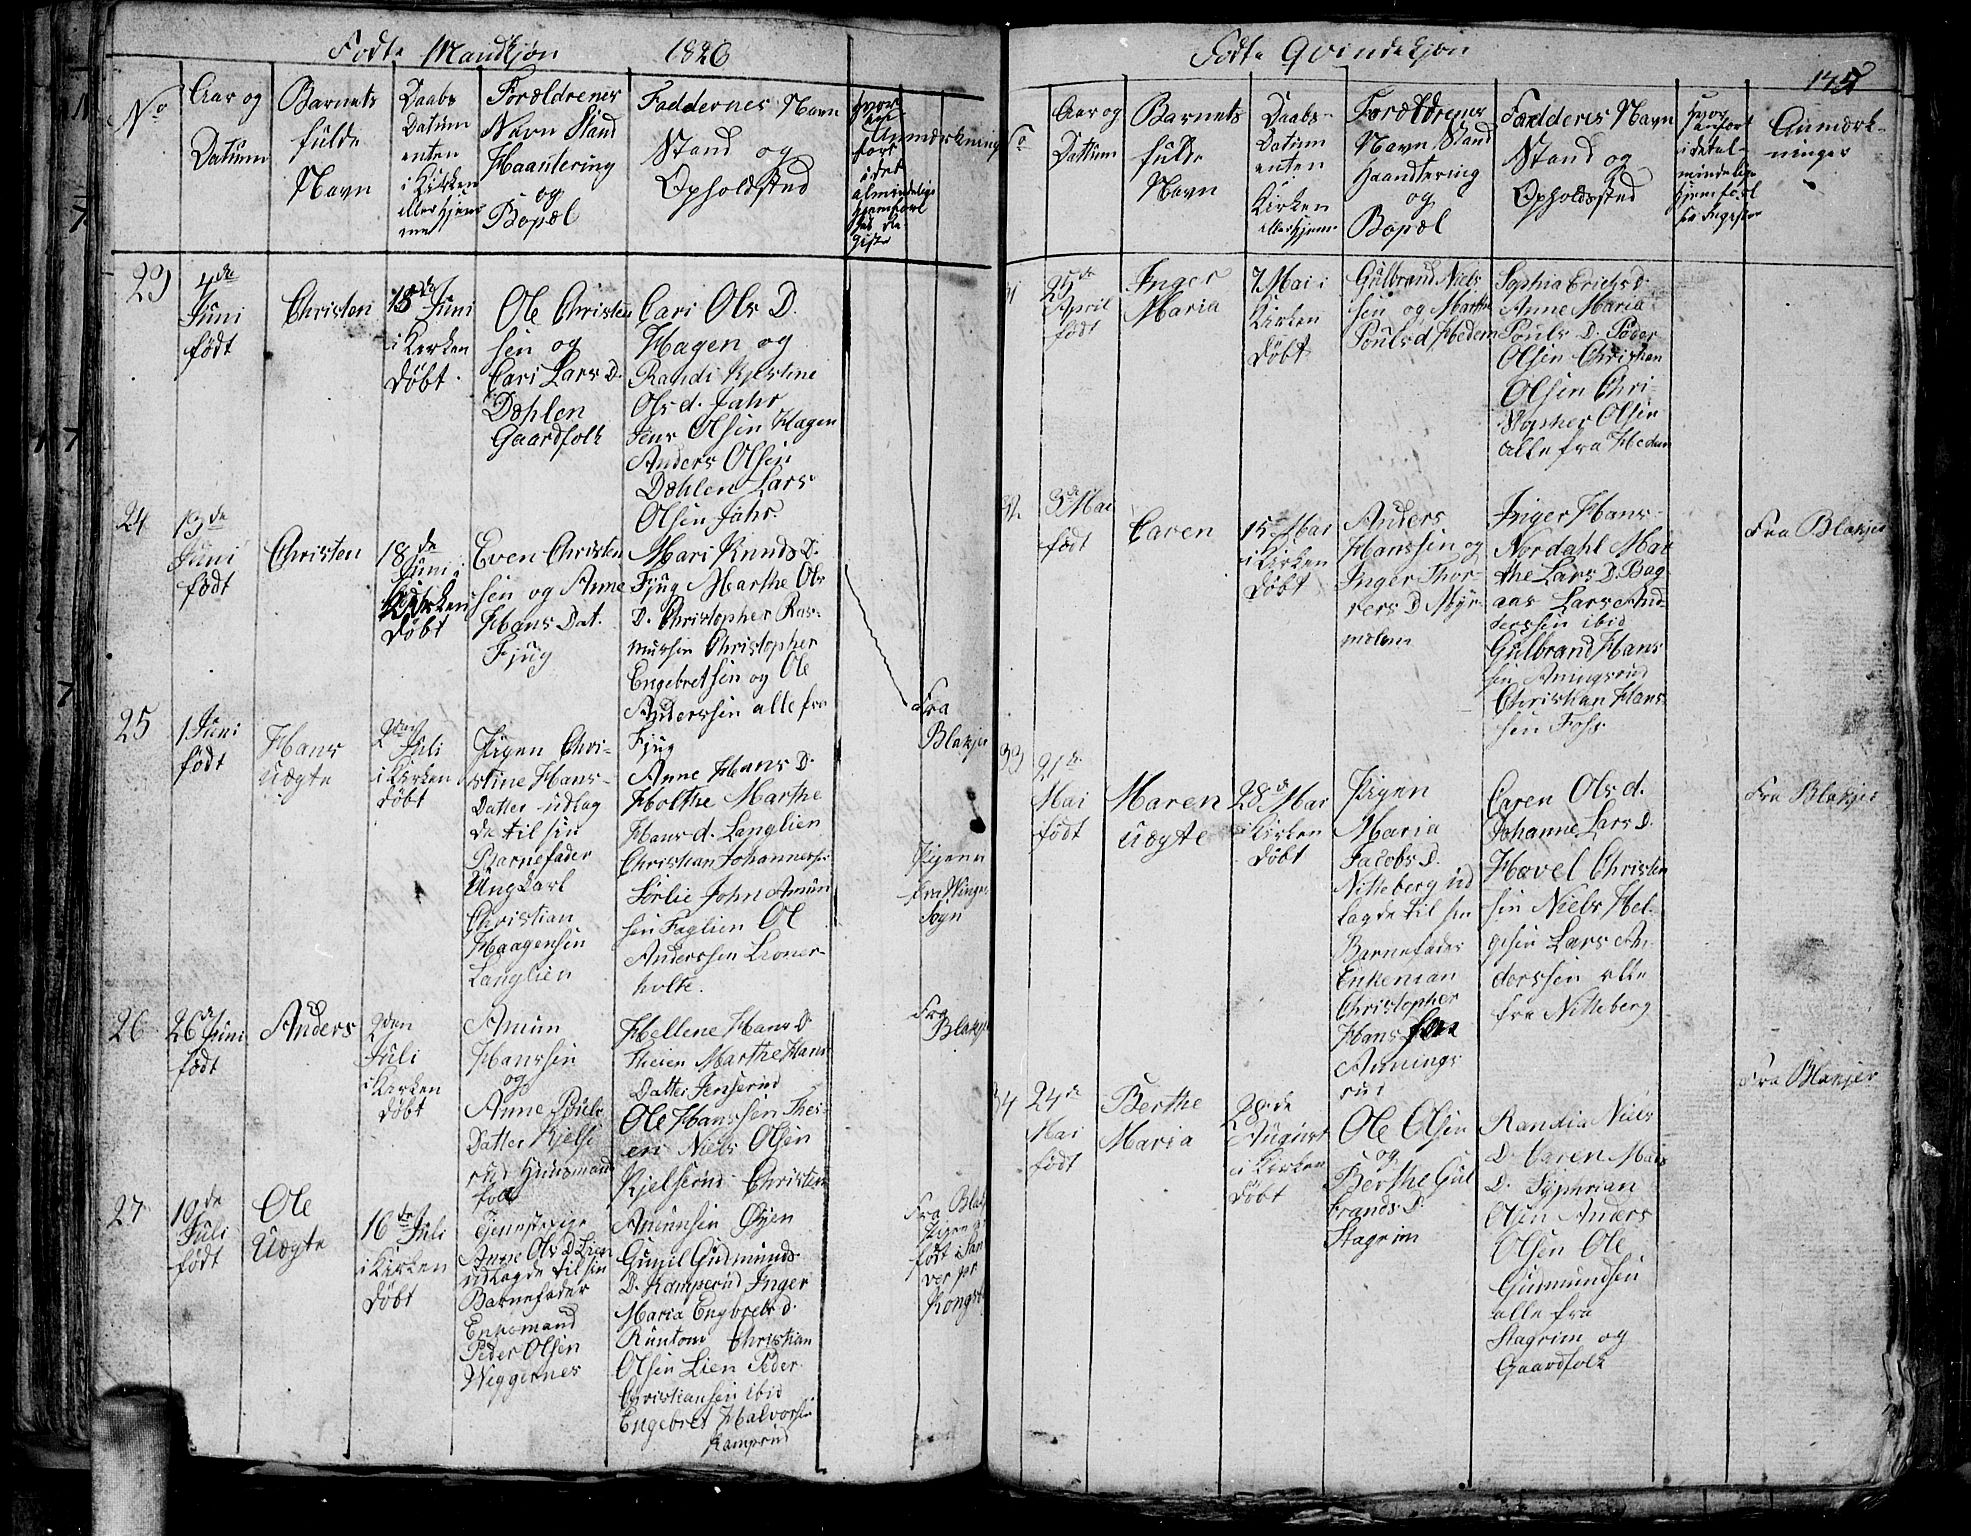 Fødte Mandkjøn 1826
No
Aar og
Datum
Barnets
fulde
Navn
Daabs
Datum
enten
i Kirken
eller hjem
me
Forældrenes
Navn Stand
Haantering
og
Bopæl
Faddernes Navn
Stand og
Opholdsted
Anmærkning
23
4de
Juni
født
Christen
18de Juni
i Kirken
døbt
Ole Christen
sen og
Cari Lars D.
Dæhlen
Gaardfolk
Cari Ols D.
Hagen og
Randi Kjestine
Ols d. Jahr
Jens Olsen Hagen
Anders Olsen
Dæhlen Lars
Olsen Jahr.
24
13de
Juni
født
Christen
18de
Juni i
Kirken
døbt
Even Christen
sen og Anne
Hans Dat.
Fjug
Mari Knuds D.
Fjug Marthe Ols
D. Christopher Ras-
mussen Christopher
Engebretsen og Ole
Anderssen alle fra
Fjug
25
1 Juni
født
Hans
Uægte
2den
Juli
i Kirken
døbt
Pigen Chri-
stine Hans-
Datter udlag
de til sin
Barnefader
Ungkarl
Christian
Haagensen
Langlien
Anne Hans D.
Holthe Marthe
Hans d. Langlien
Christian Johanness.
Sørlie John Amun
sen Faglien Ol
Anderssen Lioner-
holte.
Fra
Blakjer
Pigen
fra Winger
Sogn
26
26de Juni
født
Anders
2den
Juli
i Kirken
døbt
Amun
Hanssen
og
Anne Pouls
Datter Kjelse
rud Huusmands
folk
Hellene Hans D
Theien Marthe Hans
Datter Jenserud
Ole Hanssen Thei-
en Niels Olsen
Kjelserud Christen
Amunsen Øyen
Fra
Blakjer
27
10de
Juli
født
Ole
Uægte
16de Juli
i Kirken
døbt
Tjenestepige
Anne Ols D Lien
udlagde til sin
Barnefader
Enkemand
Peder Olsen
Wiggernes
Gunil Gudmunds
D. Kamperud Inger
Maria Engbrets d.
Runtom Christian
Olsen Lien Peder
Christiansen ibid
Engebret Halvors.
Kamprud
Fra Blak
Pigen er
født i San
Kongs
Fødte Qvindekjøn
145
Aar og
Datum
Barnets
fulde
Navn
Daabs-
Datum
enten
Kirken
eller hjem
Forældrenes
Navn Stand
Haandtering
og
Bopæl
Fadderes Navn
Stand og
Opholdssted
Anmærk-
ninger
31
25de
April
født
Inger
Maria
7 Mai i
Kirken
Døbt
Gulbrand Niels
sen og Marthe
Pouls d. Hedem
Sophia Erichs D.
Anne Maria
Pouls D. Peder
Olsen Christian
Olsen Chri-
stopher Olsen
alle fra Hedem
32
3de Mai
født
Caren
15 Mai
i Kirken
Døbt
Anders
Hanssen og
Inger Thor-
Inger Hans-
Nordahl Mar
the Lars D. Bag
aas Lars And
derssen ibid
Gulbrand Hans
sen Amingsrud
Christian Hans
sen Foss
Fra Blakjer
33
21de
Mai
født
Maren
Uægte
28de Mai
i Kirken
døbt
Pigen
Maria
Jacobs D.
Nitteberg ud
lagde til sin
Barnefader
Enkeman
Christopher
Hans
Amings
rud
Caren Ols d.
Johanne Lars D.
Havel Christen
sen Niels Hel-
gesen Lars An-
derssen alle
fra Nitteberg
Fra Blakjer
34
24de
Mai
født
Berthe
Maria
28de
August
i Kirken
døbt
Ole Olsen
og
Berthe Gul
brands D.
Stagrim
Randia Niels
D. Caren Mais
D. Syphrian
Olsen Anders
Olsen Ole
Gudmundsen
alle fra
Stagrim og
Gaardfolk
Fra Blakjer